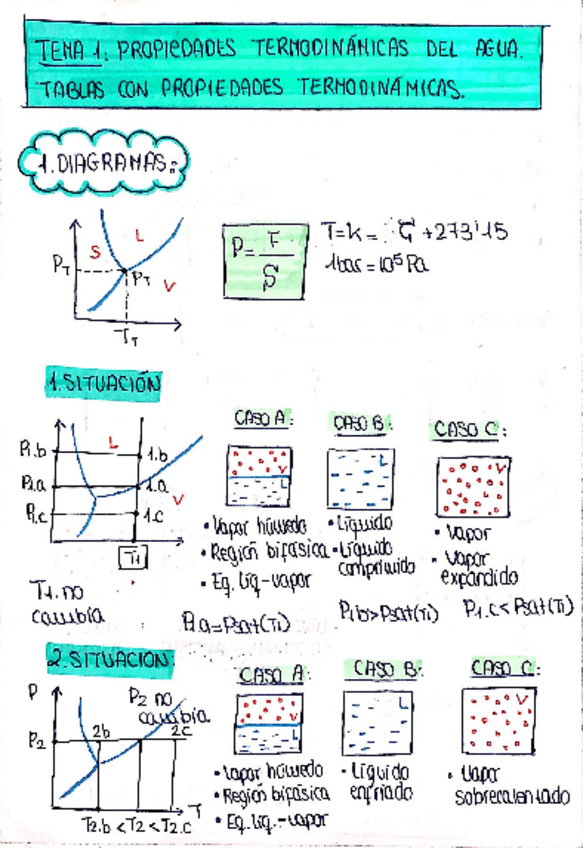 TEMA 1: PROPIEDADES TERMODINÁMICAS DEL AGUA.
TABLAS CON PROPIEDADES TERMODINÁMICAS.
1. DIAGRAMAS:
S L
PT PT V
TT
P = F / S
T=K= +273'15
1bar = 10⁵ Pa
1. SITUACIÓN
P1.b L 1.b
P1.a 1.a
V
P1.c 1.c
T1
T1. no
cambia
CASO A:
V
L
• Vapor húmedo
• Región bifásica
• Eq. líq-vapor
P1.a=Psat(T1)
CASO B:
L
• Líquido
• Líquido
comprimido
P1.b>Psat(T1)
CASO C:
V
• Vapor
• Vapor
expandido
P1.c<Psat(T1)
2. SITUACION:
P P2 no
cambia
P2 2b 2c
T
T2.b < T2 < T2.c
CASO A:
V
L
• Vapor húmedo
• Región bifásica
• Eq. líq.-vapor
CASO B:
L
• Líquido
enfriado
CASO C:
V
• Vapor
sobrecalentado